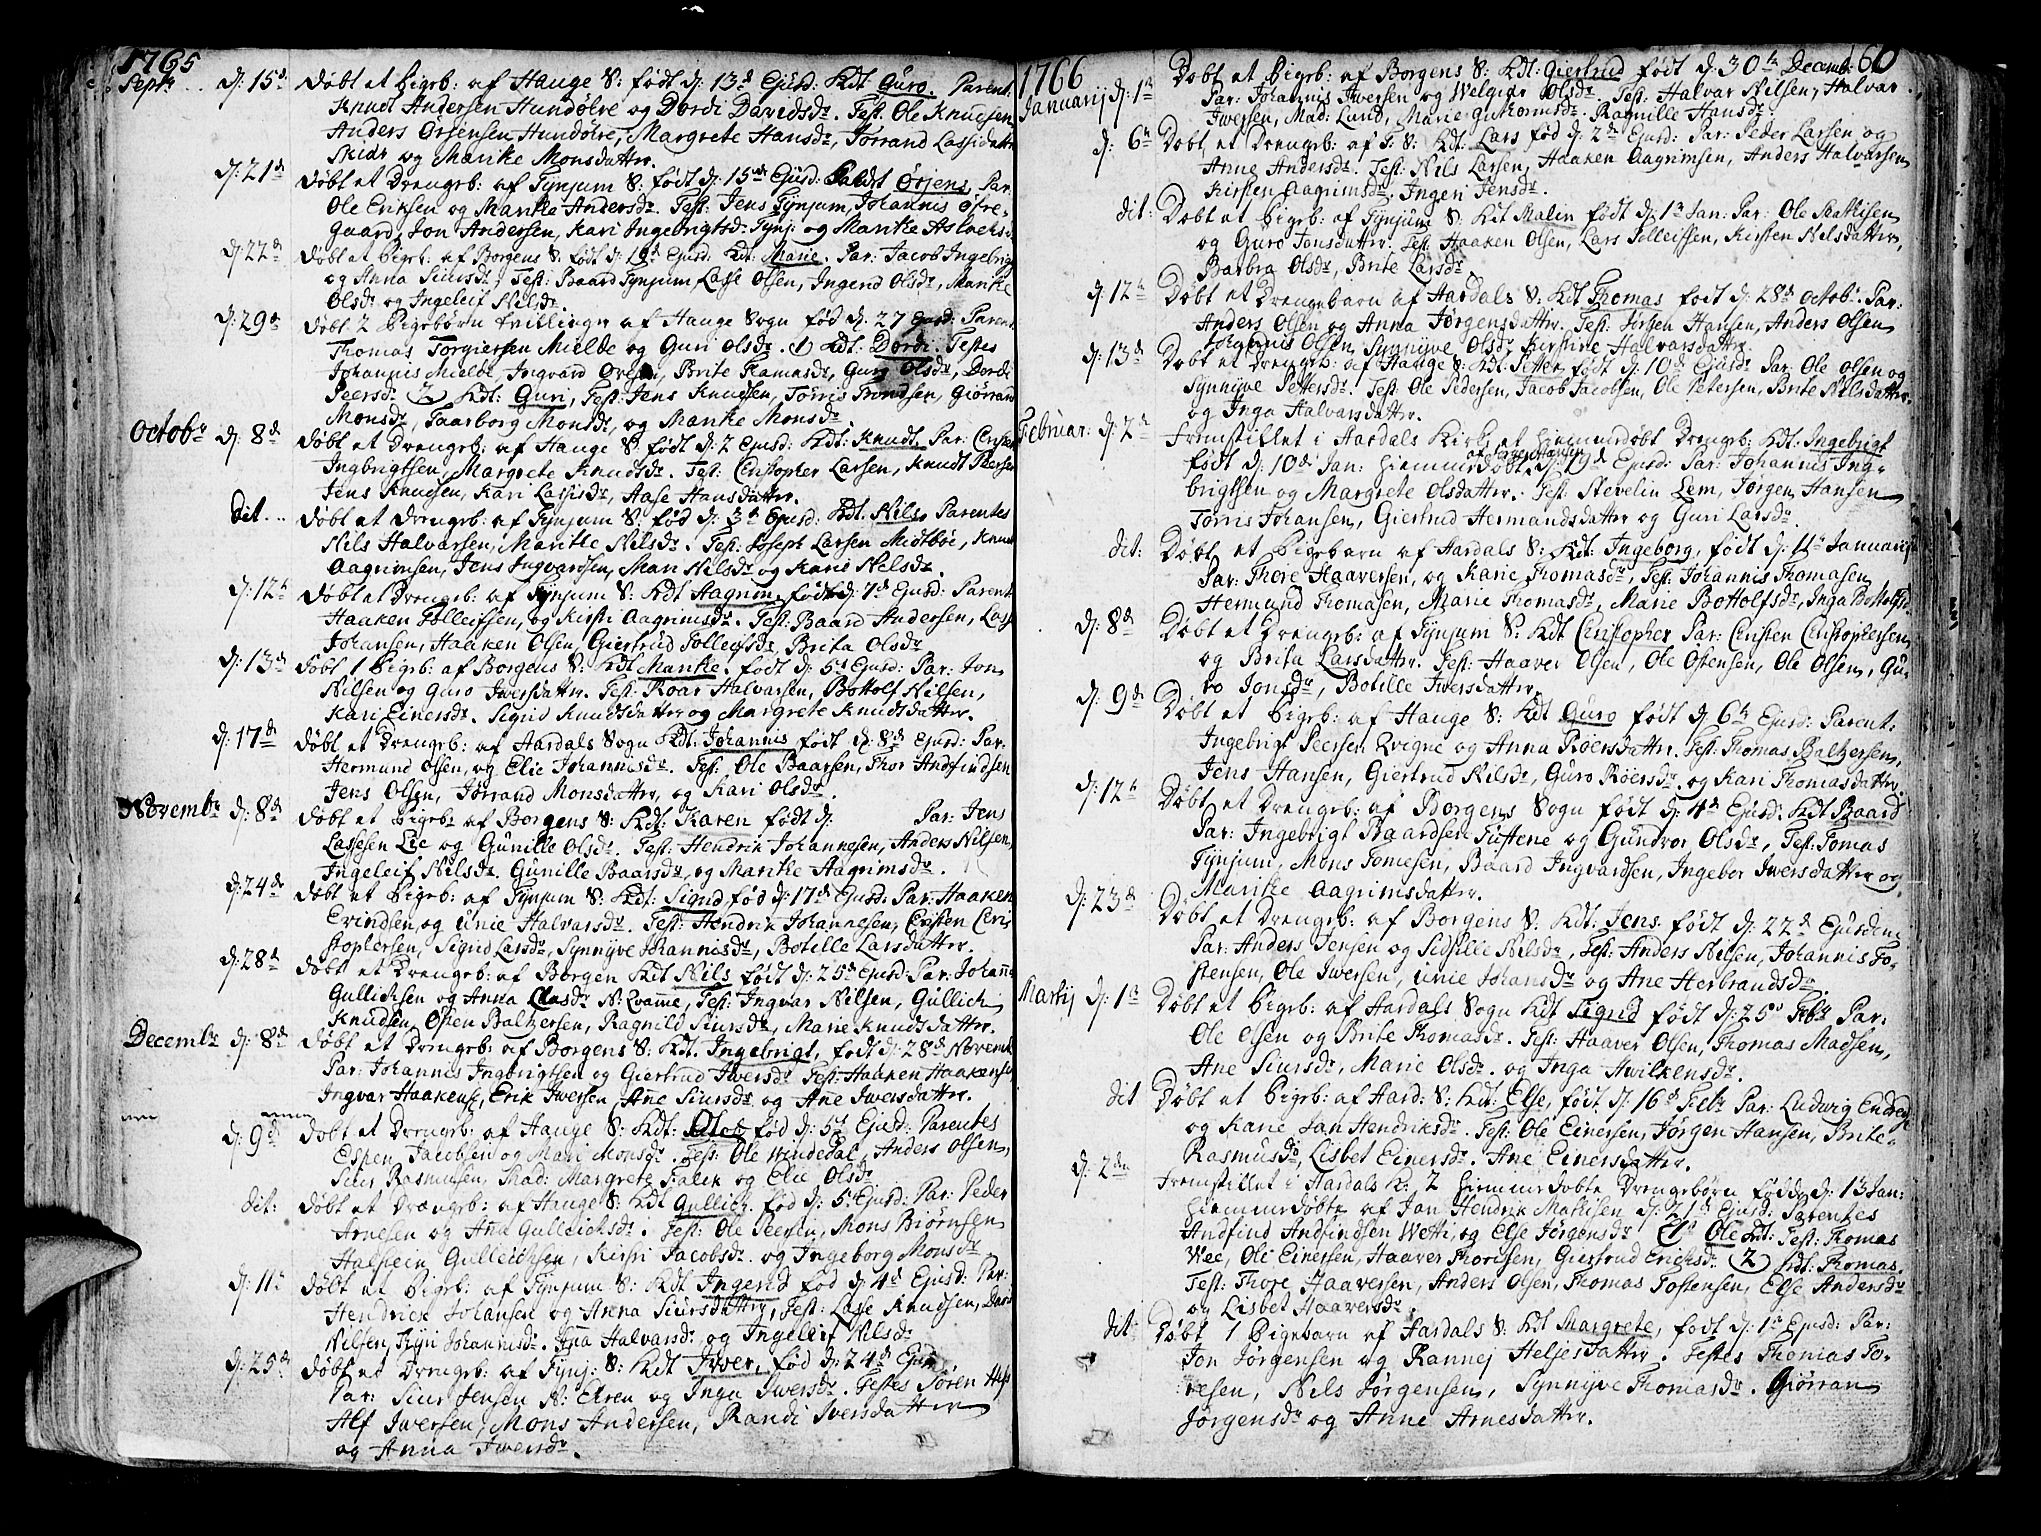 1765
Septr. d: 15d. Døbt et Pigeb: af Hauge S: født d: 13d Ejusd: Kdt Guro. Parent:
Knudt Andersen Hundølre og Dordi Davidsdr. Test: Ole Knudsen
Anders Ørjensen Hundølre, Margrete Hansdr, Torrand Lassidattr
Skidr og Maritte Monsdattr.
d: 21d Døbt et Drengeb: af Tynjum S: født d: 15de Ejusd: Kaldet Ørjens, Par:
Ole Eriksen og Maritte Andersdr. Test: Jens Tynjum, Johannis Øfre-
gaard, Jon Andersen, Kari Ingebrigtsdr. Tynj: og Maritte Aslaks
d: 22d Døbt et Pigeb: af Borgens S: født d: 19d Ejusd: Kdt: Marie. Par: Jacob Ingebrig
og Anna Siursdr, Test: Baard Tynjum, Lasse Olsen, Ingerid Olsdr, Maritte
Olsdr og Ingeleif Nilsdr.
d: 29d Døbt 2 Pigebørn tvillinger af Hauge Sogn fød d: 27 Ejusd: Parent
Thomas Torgiersen Mielde og Guri Olsdr. 1) Kdt: Dordi. Testes
Johannis Mielde, Ingvard, Brite Ramasdr, Guro Olsdr, Dordi
Peersdr 2) Kdt: Guri, Test: Jens Knudsen, Torris Trondsen, Giørrand
Monsdr, Taarborg Monsdr, og Maritte Monsdr
Octobr d: 8d Døbt et Drengeb: af Hauge S: født d: 2 Ejusd: Kdt: Knudt Par: Cristen
Ingbrigtsen, Margrete Knudsdr. Test: Cristopher Larsen, Knudt Peersen
Jens Knudsen, Kari Lassisdr, Aase Hansdattr.
Dit... Døbt et Drengeb: af Tynjum S: fød d: 3d Ejusd: Kdt: Nils, Parentes
Nils Halvarsen, Maritte Nilsdr. Test: Joseph Larsen Midtbøe, Knud
Aagrimsen, Jens Ingvardsen, Mari Nilsdr og Karie Nilsdr.
d: 12te Døbt et Drengeb: af Tynjum S: Kdt Aagrim, født d: 7d Ejusd: Parent
Haaken Tolleifsen, og Kirsti Aagrimsdr. Test: Baard Andersen, Lass
Johansen, Haaken Olsen, Giertrud Tolleifsdr, Brita Olsdr
d: 13d Døbt 1 Pigeb: af Borgens S: Kdt Maritte. født d: 5d Ejusd: Par: Jon
Nilsen og Guro Iversdattr. Test: Roar Halvarsen, Bottolf Nilsen,
Kari Einersdr. Sigrid Knudsdattr og Margrete Knudsdattr.
d: 17de Døbt et Drengeb: af Aardals Sogn Kdt: Johannis født d: 8d Ejusd: Par:
Hermund Olsen, og Elie Johannisdr. Test: Ole Baarsen, Thor Andfindsen
Jens Olsen, Jørrand Monsdattr, og Kari Olsdr.
Novembr d: 8d Døbt et Pigeb: af Borgens S: Kdt: Karen født d: Par: Jens
Lassesen Lie og Gunille Olsdr. Test: Hendrik Johannesen, Anders Nilsen,
Ingeleif Nilsdr. Gunille Baarsdr, og Maritte Aagrimsdr.
d: 24de Døbt et Pigeb: af Tynjum S: Kdt: Sigrid, fød d: 17d Ejusd: Par: Haaken
Erindsen, og Unie Halvarsdr. Test: Hendrik Johannesen, Cristen Cris
stophersen, Sigrid Larsdr, Synnyve Johannisdr, Botille Larsdattr.
d: 28d Døbt et Drengeb: af Borgen Kdt Nils født d: 25d Ejusd: Par: Johann
Gullichsen og Anna Olasdr N: Qvame, Test: Ingvar Nilsen, Gullich
Knudsen, Ospen Baltzersen, Ragnild Siursdr, Marie Knudsdattr.
Decembr d: 8d Døbt et Drengeb: af Borgens S: Kdt. Ingebrigt, født d: 28d Novemb
Par: Johannis Ingbrigtsen og Giertrud Iversdr Test: Haaken Haakensen
Ingvar Haakens, Erik Iversen, Ane Siursdr og Ane Iversdattr.
d: 9d Døbt et Drengeb: af Hauge S: Kdt: Olof fød d: 5d Ejusd: Parentes
Espen Jacobsen og Mari Monsdr. Test: Ole Windedal, Anders Olsen,
Siur Rasmusen, Mad: Margrete Falck og Elie Olsdr
dit: Døbt et Drængeb: af Hauge S: Kdt Gullich fød d: 5d Ejusd: Par: Peder
Arnesen og Ana Gulleichsdr. Test: Ole Peersen, Mons Biørnsen
Halstein Gulleichsen, Kirsti Jacobsdr. og Ingeborg Monsdr
d: 11te Døbt et Pigeb: af Tynjum S: Kdt Ingerid fød d: 4d Ejusd: Par:
Hendrick Johansen og Anna Siursdattr, Test: Lasse Knudsen, David
Nilsen, Kyri Johannisdr. Ana Halvarsdr, og Ingeleif Nilsdr
d: 25de Døbt et Drengeb: af Tynj: S: Kdt Iwer, fød d: 24d Ejusd:
Par: Siur Jensen N: Elren og Inga Iwersdr. Testes Søren
Alf Iwersen, Mons Andersen, Randi Iversdattr
og Anna Iwersdr.
1766 160
Januarij d: 1te Døbt et Pigeb: af Borgens S: Kdt: Giertrud født d: 30te Decemb:
Par: Johannis Iwersen og Welgier Olsdr. Test: Halvar Nilsen, Halvar
Iwersen, Mad: Lund, Marie Gutormsdr. Ragnille Hansdr.
d: 6te Døbt et Drengeb: af T: S: Kdt: Lars fød d: 2d Ejusd: Par: Peder Larsen og
Anne Andersdr. Test: Nils Larsen, Haaken Aagrimsen, Anders Halvarsen,
Kirsten Aagrimsdr. Ingeri Jensdr.
dit: Døbt et Pigeb: af Tynjum S: Kdt Malin født d: 1te Jan: Par: Ole Mathisen
og Guro Jonsdattr. Test: Haaken Olsen, Lars Tolleifsen, Kirsten Nilsdattr,
Barbra Olsdr, Brite Larsdr.
d: 12te Døbt et Drengebarn af Aardals S: Kdt Thomas født d: 28d Octobr. Par:
Anders Olsen og Anna Jørgensdattr. Test: Jørgen Hansen, Anders Olsen
Johannis Olsen, Synnyve Olsdr, Kirstine Halvarsdattr.
d: 13d Døbt et Drengeb: af Hauge S: Kdt: Petter født d: 10d Ejusd: Par: Ole Olsen og
Synnyve Pettersdr. Test: Ole Pedersen, Jacob Jacobsen, Ole Petersen, Brite Nilsdattr.
og Inga Halvarsdattr.
Februar: d: 2te Fremstillet i Aardals Kirke et hjemmedøbt Drengeb: Kdt: Ingebrigt
født d: 10d Jan: hjemmedøbt af Jørgen Hansen d: 19d Ejusd: Par: Johannis Ing-
brigtsen og Margrete Olsdattr. Test: Stevelin Lem, Jørgen Hansen
Torris Johansen, Giertrud Hermandsdattr og Guri Larsdr.
dit: Døbt et Pigebarn af Aardals S: Kdt: Ingeborg, født d: 11te Januarij
Par: Thore Haaversen, og Karie Thomasdr, Test: Johannis Thomasen
Hermund Thomasen, Marie Thomasdr, Marie Bottolfsdr, Inga Bottolfsdr
d: 8d Døbt et Drengeb: af Tynjum S: Kdt Christopher Par: Christen Christophersen,
og Brita Larsdattr. Test: Haaver Olsen, Ole Ostensen, Ole Olsen, Gu-
ro Jonsdr, Botille Iwersdattr.
d: 9d Døbt et Pigeb: af Hauge S: Kdt Guro født d: 6te Ejusd: Parent:
Ingebrigt Peersen Qvigne og Anna Røersdattr. Test: Thomas Baltzersen,
Jens Hansen, Giertrud Nilsdr, Guro Røersdr. og Kari Thomasdattr.
d: 12te Døbt et Drengeb: af Borgens Sogn født d: 4d Ejusd: Kdt Baard
Par: Ingebrigt Baardsen Tustene og Gundvor Olsdr, Test: Tomas
Tynjum, Mons Tomesen, Baard Ingvardsen, Ingebor Iwersdattr og
Maritte Aagrimsdattr.
d: 23d Døbt et Drengeb: af Borgens S: Kdt: Jens født d: 22d Ejusdem
Par: Anders Jensen og Sidselle Nilsdr, Test: Anders Nilsen, Johannis To-
stensen, Ole Iwersen, Unie Johansdr og Ane Herbrandsdr.
Martij d: 1te Døbt et Pigeb: af Aardals Sogn Kdt Sigrid født d: 25d Febr Par:
Ole Olsen og Brite Thomasdr. Test: Haaver Olsen, Thomas Madsen,
Ane Siursdr, Marie Olsdr. og Inga Hwilkensdr.
dit Døbt et Pigeb: af Aard: S: Kdt: Else, født d: 16d Febr Par: Ludwig Endrey
og Karie Jan Hendriksdr. Test: Ole Einersen, Jørgen Hansen, Brite
Rasmusdr, Lisbet Einersdr. Ane Einersdattr.
d: 2den Fremstillet i Aardals K: 2 hiemmedøbte Drengebørn fødde d: 13 Jan:
hiemmedøbte af Jan Hendrik Mathisen d: 21d Ejusd: Parentes
Andfind Andfindsen Wetti, og Else Jørgensdr 1) Ole Kdt: Test: Thomas
Wee, Ole Einersen, Haaver Thoresen, Giertrud Ericksdr. 2) Kdt: Thomas
Test: Thore Haaversen, Anders Olsen, Thomas Tostensen, Else Andersdr
og Lisbet Haaversdr.
dit: Døbt 1 Pigebarn af Aardals S: Kdt Margrete, født d: 1te Ejusd: Par:
Jon Jørgensen og Rannej Helgesdattr. Testes Thomas To-
resen, Nils Jørgensen, Synnyve Thomasdr. Giørran
Jørgensdr og Anne Arnesdattr.